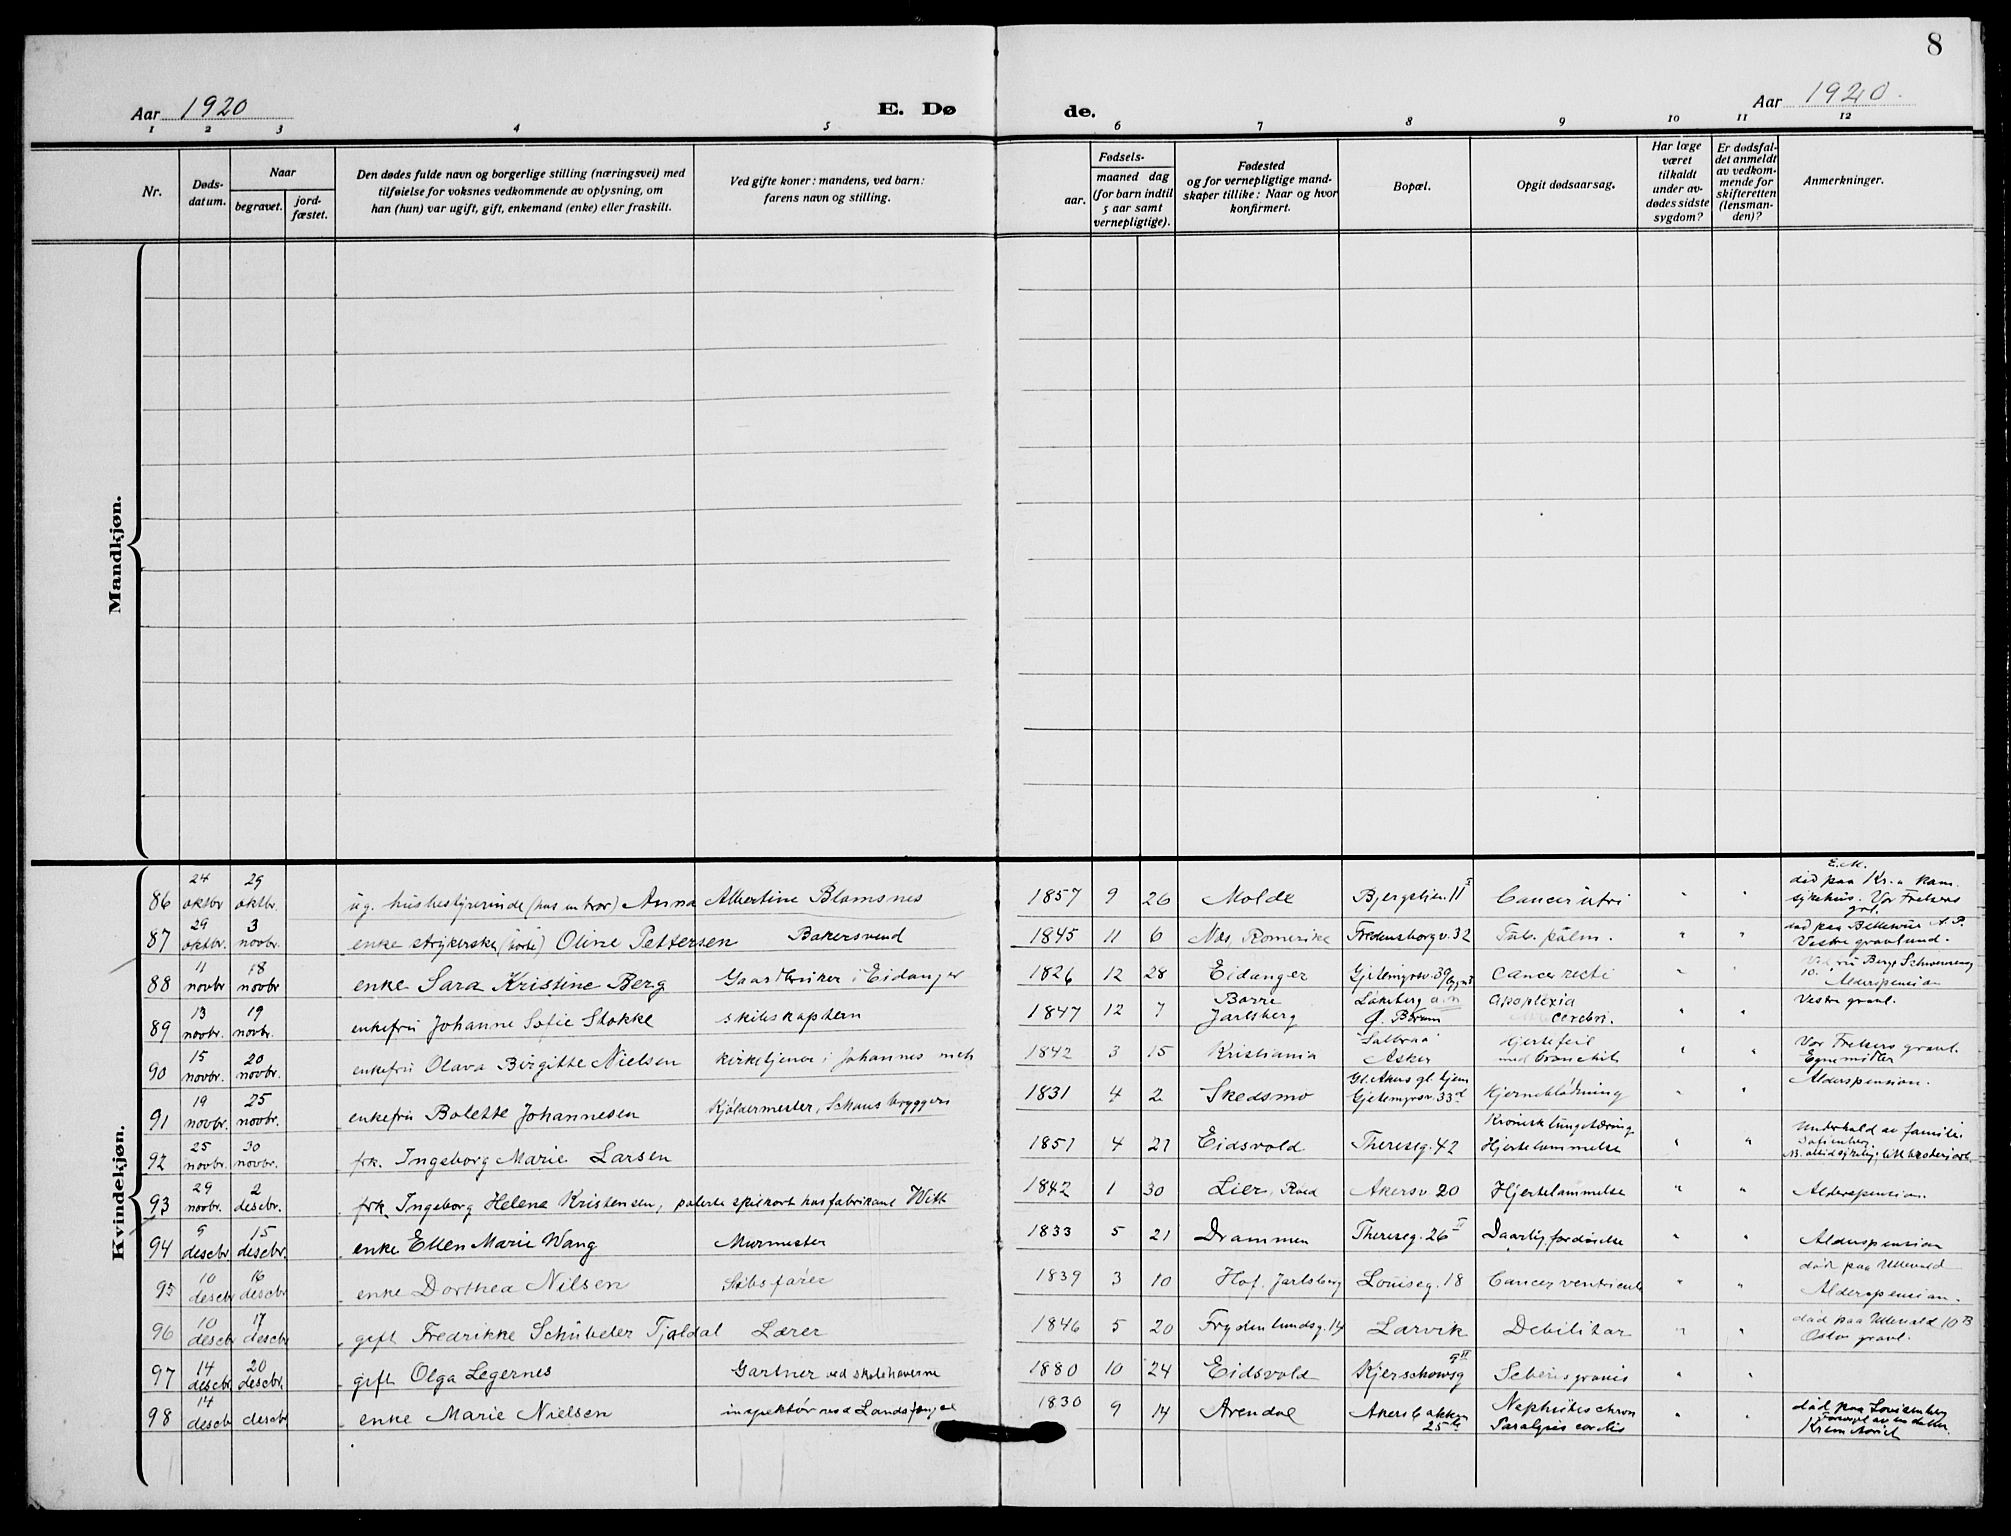 8
Aar 1920
E. Dø
de.
Aar 1920.
1 2 3 4 5 6 7 8 9 10 11 12
Nr.
Døds-
datum.
Naar
begravet.
jord-
fæstet.
Den dødes fulde navn og borgerlige stilling (næringsvei) med
tilføielse for voksnes vedkommende av oplysning, om
han (hun) var ugift, gift, enkemand (enke) eller fraskilt.
Ved gifte koner: mandens, ved barn:
farens navn og stilling.
Fødsels-
aar.
maaned dag
(for barn indtil
5 aar samt
vernepligtige).
Fødested
og for vernepligtige mand-
skaper tillike: Naar og hvor
konfirmert.
Bopæl.
Opgit dødsaarsag.
Har læge
været
tilkaldt
under av-
dødes sidste
sygdom?
Er dødsfal-
det anmeldt
av vedkom-
mende for
skifteretten
(lensman-
den)?
Anmerkninger.
Mandkjøn.
Kvindekjøn.
86 24 oktbr 29 oktbr. ug. husbestyrerinde (hos en bror) Anna Albertine Blomsnes 1857 9 26 Molde Bjergstien 11 I Cancer utri " " E. M. død paa Kr.a kom. sykehus. Vor Frelsers grl.
87 29 oktbr. 3 novbr. enke strykerske (borte) Oline Pettersen Bakersvend 1845 11 6 Nes Romerike Fredensborgv. 32 Tub. pulm. " " død paa A.P. Vestre gravlund.
88 11 novbr 18 novbr enke Sara Kristine Berg Gaardbruker i Eidanger 1826 12 28 Eidanger Gjetemyrsv. 39 Cancer recti " " Alderspension
89 13 novbr. 19 novbr. enkefru Johanne Sofie Stokke skibskaptein 1847 12 7 Borre Jarlsberg Ø. Bærum Apoplexia cerebri. " " Vestre gravl.
90 15 novbr. 20 novbr. enkefru Olava Birgitte Nielsen kirketjener i Johannes meh 1842 3 15 Kristiania Asker Hjertefeil med bronchit " " Vor Frelsers gravl. Egne midler
91 19 novbr. 25 novbr. enkefru Bolette Johannesen Kjøldermester, Schous bryggeri 1831 4 2 Skedsmo Gl. Akers gl. hjem Gjetemyrsv. 33 d Hjerneblødning " " Alderspension.
92 25 novbr. 30 novbr. frk. Ingeborg Marie Larsen 1851 4 21 Eidsvold Thereseg. 42 Kronisk lungetæring. Hjertelammelse " " Underhold av familie. Sofienberg.
93 29 novbr. 2 descbr. frk. Ingeborg Helene Kristensen, polerte spilkort hos fabrikant Witt 1842 1 30 Lier, Akersv. 20 Hjertelammelse " " Alderspension.
94 9 descbr. 15 descbr. enke Ellen Marie Wang Murmester 1833 5 21 Drammen Thereseg. 26 II Daarlig fordøielse " " Alderspension
95 10 descbr 16 descbr. enke Dorthea Nilsen Skibsfører 1839 3 10 Hof, Jarlsberg Louiseg. 18 Cancer ventriculi " " død paa Ullevold Alderspension.
96 10 descbr 17 descbr gift Fredrikke Schübeler Tjøldal Lærer 1846 5 20 Frydenlundsg. 14 Larvik Debilitas " " død paa Ullevold 10 B Oslo gravl.
97 14 descbr. 20 descbr. gift Olga Legernes Gartner ved skolehaverne 1880 10 24 Eidsvold Kjerschowsg 9 II Seberis gravis " "
98 14 descbr descbr enke Marie Nielsen inspektør ved Landsfængsel 1830 9 14 Arendal Akersbakken 25 Nephritis chron Paralysis cordis " " død paa Lovisenberg Krematoriet